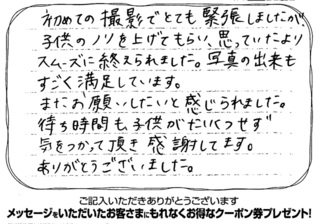 初めての撮影でとても緊張しましたが
子供のノリを上げてもらい、思っていたより
スムーズに終えられました。写真の出来も
すごく満足しています。
またお願いしたいと感じられました。
待ち時間も子供がたいくつせず
気をつかって頂き感謝してます。
ありがとうございました。
ご記入いただきありがとうございます
メッセージをいただいたお客さまにもれなくお得なクーポン券プレゼント!